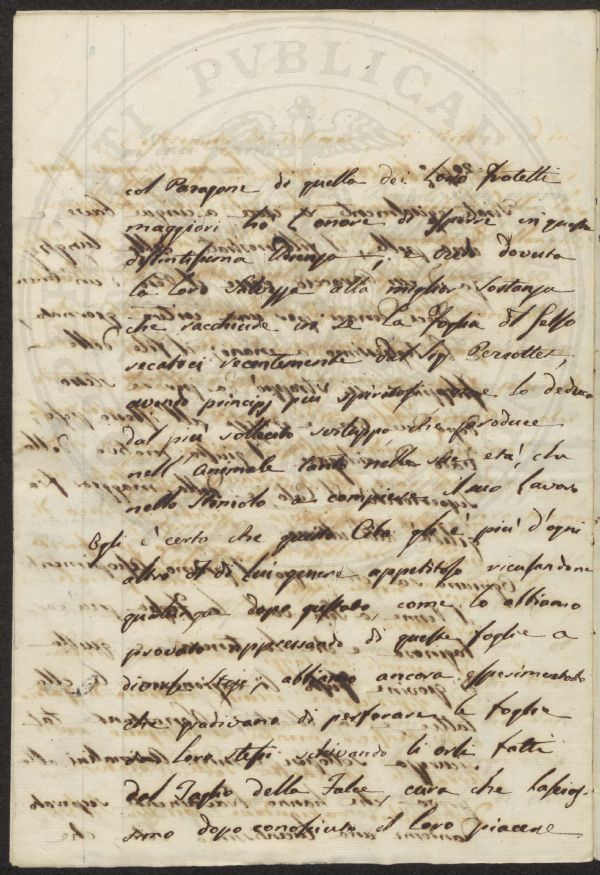 PVBLICAE
col Paragone di quella dei Loro fratelli
maggiori ho l'onore di esporre in questa
distintissima
la Loro Salvezza alla miglior Sostanza
che racchiude in se la foglia di Gelso
recatoci recentemente dal Sig.r
avendo principj più spiritosi, come lo deduco
dal più sollecito sviluppo, che produce
nell'Animale tanto nelle sue età, che
nello a compiere il suo Lavoro
Egli è certo che questo Cibo gli è più d'ogni
altro di di Lui genere appetitoso ricusandone
dopo gustato, come lo abbiamo
provato appressando di queste foglie a
diverse; abbiamo ancora esperimentato
che gradivano di perforare le foglie
da Loro stessi schivando li orli fatti
dal Taglio della Falce, cura che lascias-
simo dopo conosciuto il Loro piacere